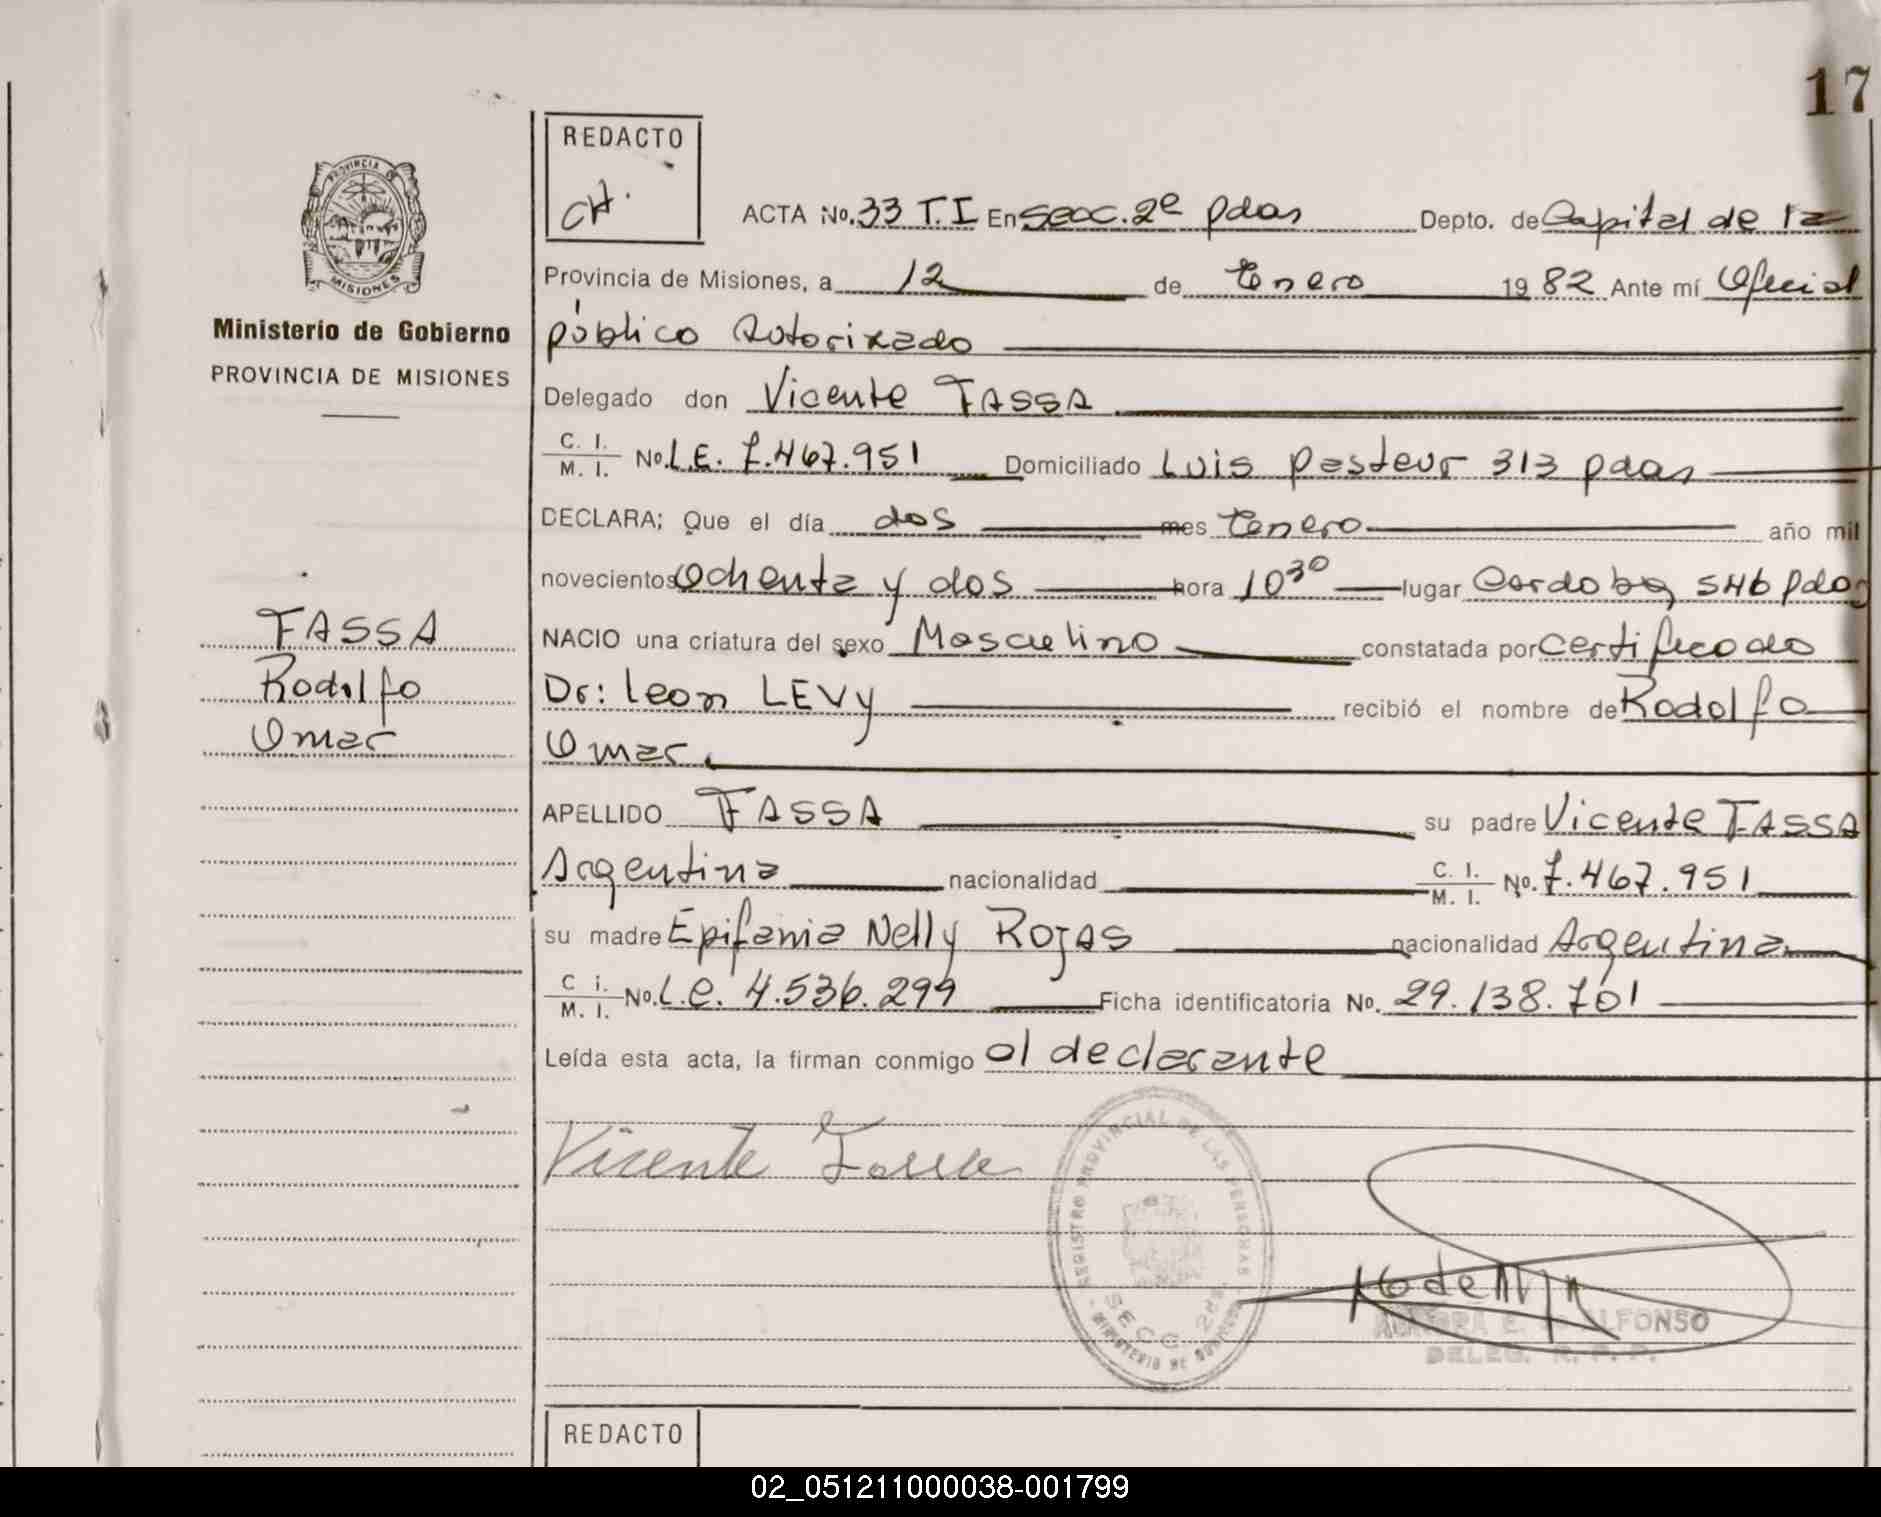 17
REDACTO
CH.
PROVINCIA
MISIONES
Ministerio de Gobierno
PROVINCIA DE MISIONES
ACTA No. 33 T.I En Secc. 2e pdas Depto. de Capital de la
Provincia de Misiones, a 12 de Enero 1982 Ante mí Oficial
público Autorizado
Delegado don Vicente FASSA
C. I. / M. I. No. L.E. 7.467.951 Domiciliado Luis Pasteur 313 pdas
DECLARA; Que el día dos mes Enero año mil
novecientos Ochenta y dos hora 10³⁰ lugar Cordoba 546 pdas
NACIO una criatura del sexo Masculino constatada por Certificado
Dr: Leon LEVY recibió el nombre de Rodolfo
Omar
APELLIDO FASSA su padre Vicente FASSA
Argentina nacionalidad C. I. / M. I. No. 7.467.951
su madre Epifania Nelly ROJAS nacionalidad Argentina
C i. / M. I. No. L.E. 4.536.299 Ficha identificatoria No. 29.138.701
Leída esta acta, la firman conmigo el declarante
FASSA
Rodolfo
Omar
Vicente Fassa
REGISTRO PROVINCIAL DE LAS PERSONAS
SECC. 2da.
MINISTERIO DE GOBIERNO
E. ALFONSO
DELEG. R. P. P.
REDACTO
02_051211000038-001799